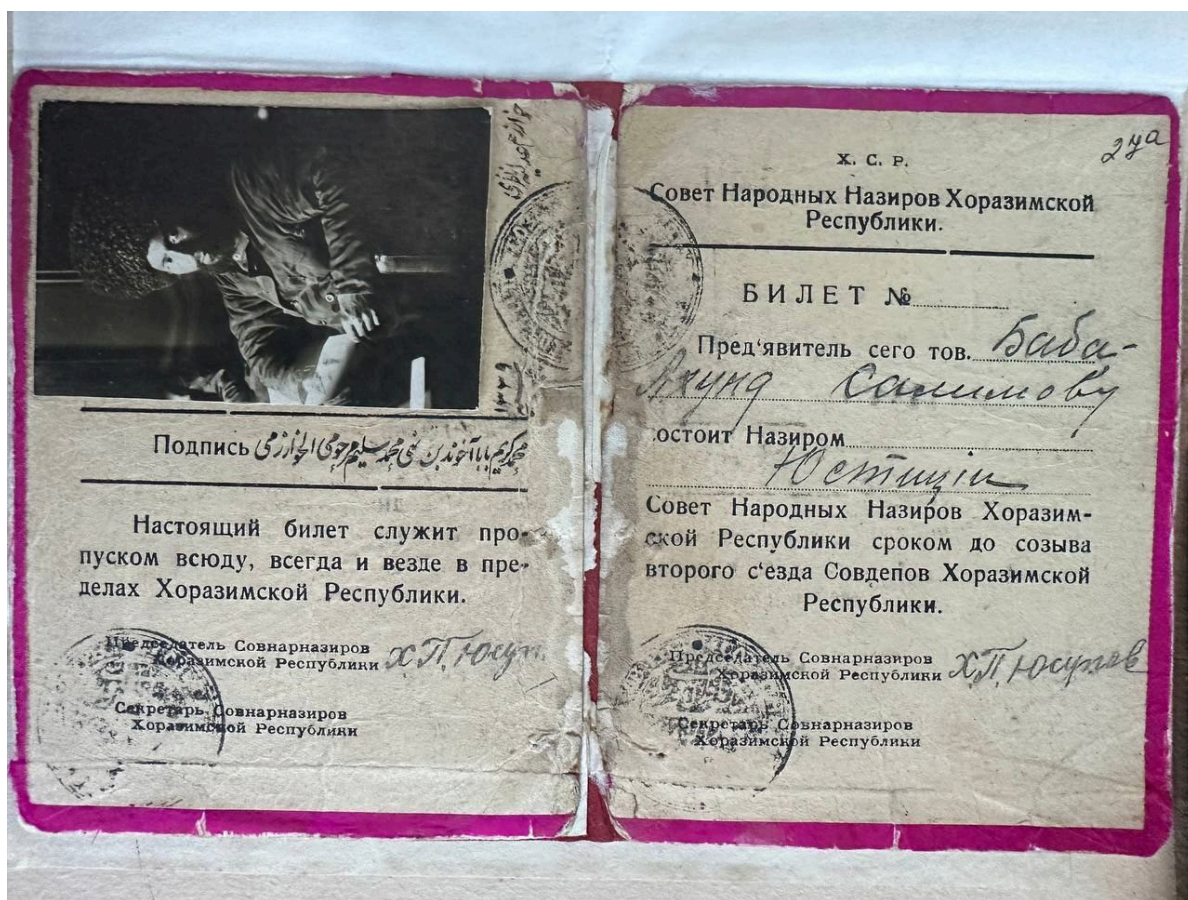 Подпись
Настоящий билет служит про-
пуском всюду, всегда и везде в пре-
делах Хоразимской Республики.
Председатель Совнарназиров
Хоразимской Республики Х.П. Юсуп
Секретарь Совнарназиров
Хоразимской Республики
١٣٣٩
Х. С. Р.
Совет Народных Назиров Хоразимской
Республики.
БИЛЕТ №
Пред‘явитель сего тов. Баба-
Ахунд Салимову
состоит Назиром
Юстиціи
Совет Народных Назиров Хоразим-
ской Республики сроком до созыва
второго с‘езда Совдепов Хоразимской
Республики.
Председатель Совнарназиров
Хоразимской Республики Х.П. Юсупов
Секретарь Совнарназиров
Хоразимской Республики